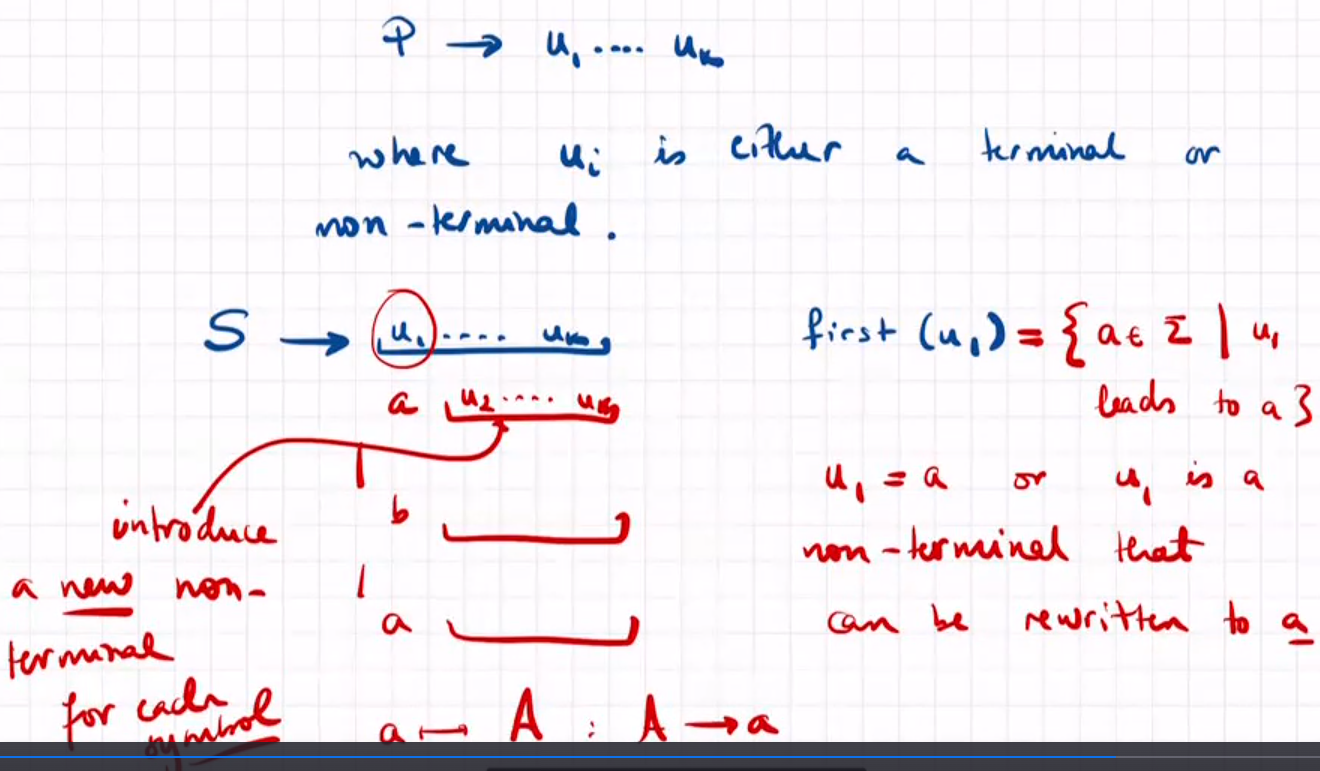 P → u₁ .... uₖ
where uᵢ is either a terminal or
non-terminal.
S → u₁ .... uₖ
a u₂ .... uₖ
|
b
|
a
introduce
a new non-
terminal
for each
symbol
a ↦ A : A → a
first (u₁) = { a ∈ Σ | u₁
leads to a }
u₁ = a or u₁ is a
non-terminal that
can be rewritten to a